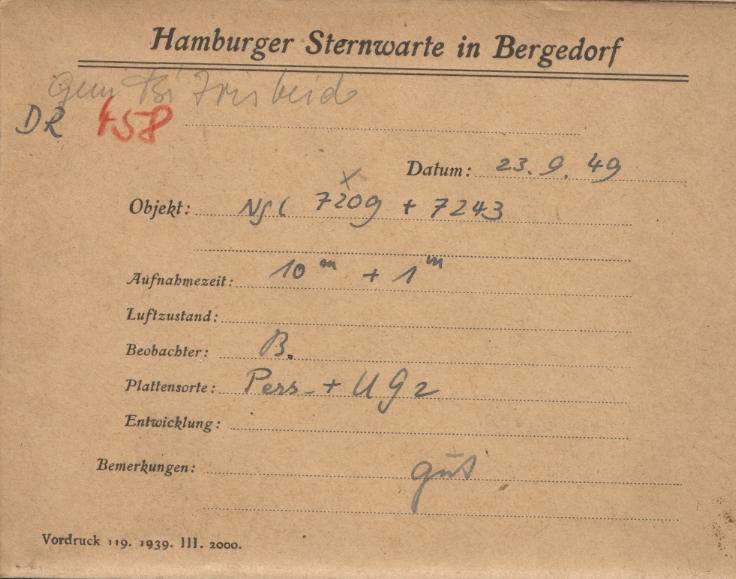 Hamburger Sternwarte in Bergedorf
DR 458
Datum: 23. 9. 49
Objekt: NGC 7209 + 7243
x
Aufnahmezeit: 10 m + 1 m
Luftzustand:
Beobachter: B.
Plattensorte: Pers. + UG2
Entwicklung:
Bemerkungen: gut
Vordruck 119. 1939. III. 2000.